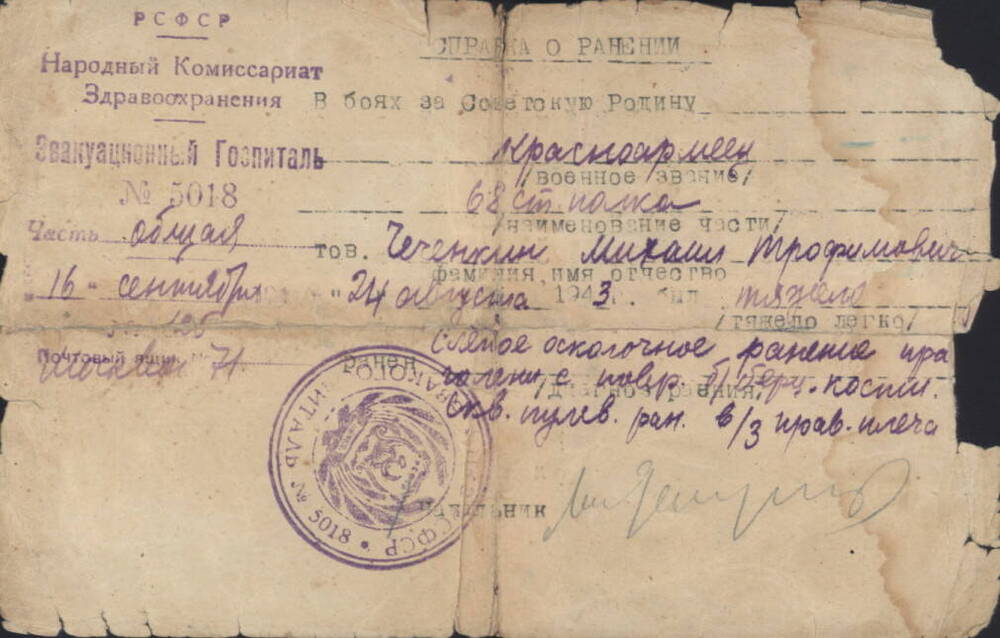 РСФСР
Народный Комиссариат
Здравоохранения
Эвакуационный Госпиталь
№ 5018
Часть общая
"16" сентября
Почтовый ящик №
Москва 71
СПРАВКА О РАНЕНИИ
В боях за Советскую Родину
Красноармеец
/военное звание/
68 ст. полка
/наименование части/
тов. Чеченкин Михаил Трофимович
фамилия имя отчество
"24 августа 1943 г. был тяжело
/тяжело легко/
Ранен слепое осколочное ранение пра
голени с повр. б/берц. кости.
/диагноз ранения/
Скв. пулев. ран. в/3 прав. плеча
Начальник
ГОСПИТАЛЬ № 5018 • РСФСР